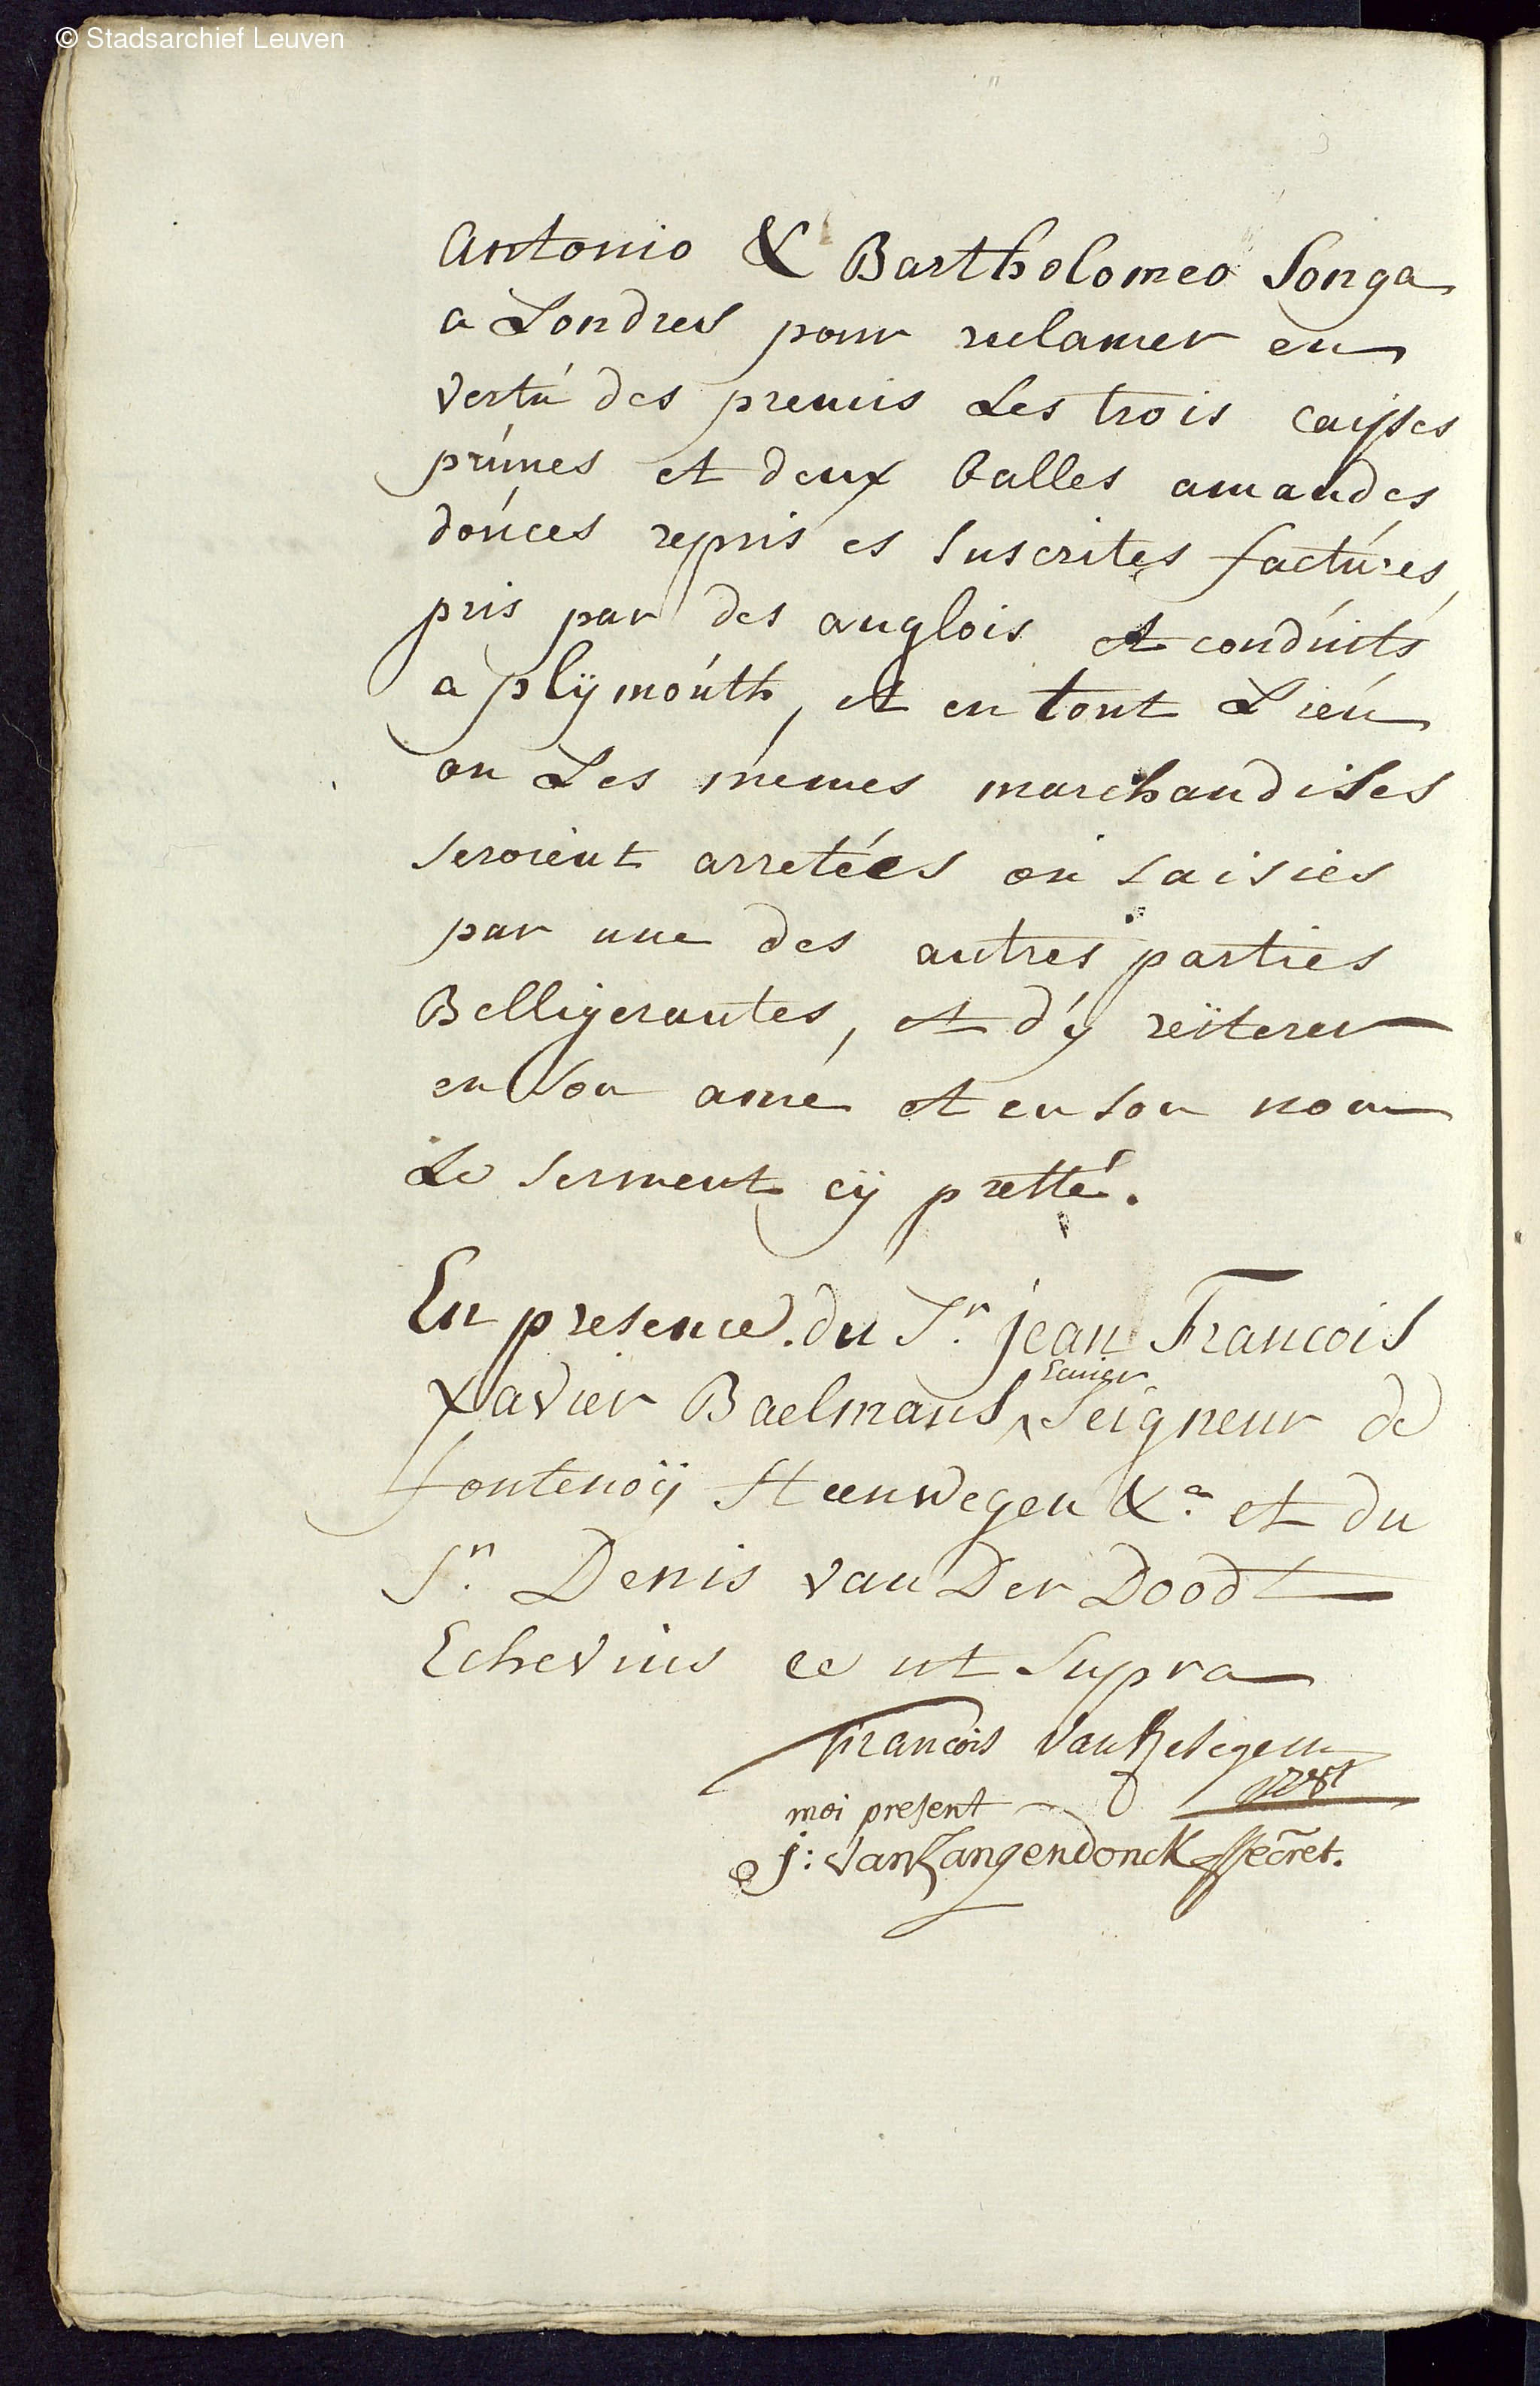 © Stadsarchief Leuven
Antonio & Bartholomeo Songa
a Londres pour reclamer en
vertú des premis Les trois caisses
prúnes et deux balles amandes
doúces repris es suscrites factúres,
pris par des anglois et condúits
a plÿmoúth, et en tout Lieú
ou Les mémes marchandises
seroient arretées oú saisies
par une des autres parties
Belligerantes, et d'y reïterer
en son ame et en son nom
Le serment cÿ pretté.
En presence du Sr. jean Francois
Ecuier
Xavier Baelmans Seigneur de
fontenoÿ Steenwegen &a. et du
Sr. Denis van Der Doodt
Echevins ce ut Supra
francois Van
moi present
j: VanLangendonck Secret.